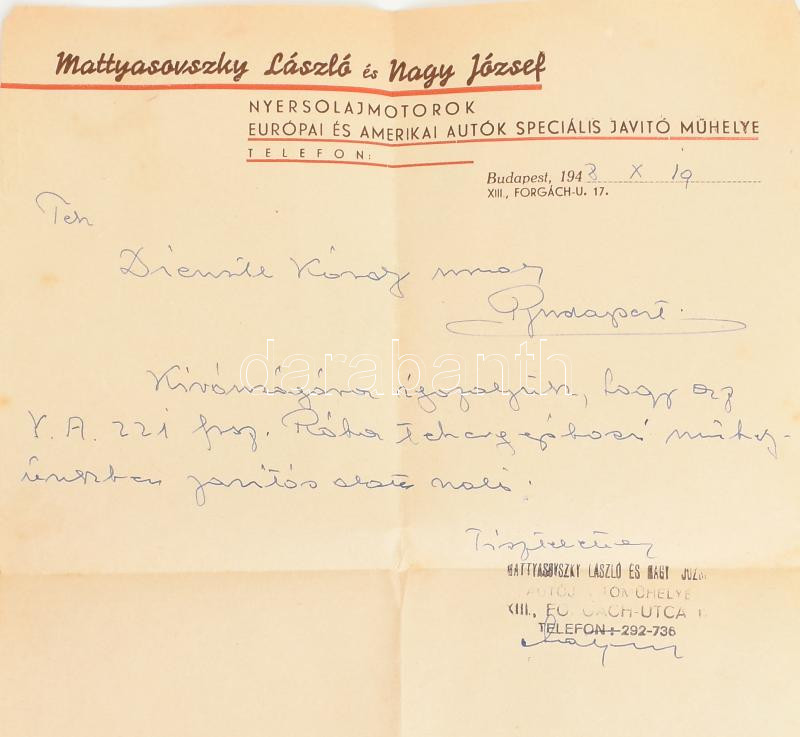 Mattyasovszky László és Nagy József
NYERSOLAJMOTOROK
EURÓPAI ÉS AMERIKAI AUTÓK SPECIÁLIS JAVITÓ MŰHELYE
TELEFON:
Budapest, 1943 X 19
XIII., FORGÁCH-U. 17.
Budapest.
darabanth
Kívánságára igazoljuk, hogy az
Y. A. 221 frsz. Rába tehergépkocsi műhely-
ünkben javítás alatt
Tisztelettel
MATTYASOVSZKY LÁSZLÓ ÉS NAGY JÓZS
XIII., FORGÁCH-UTCA
TELEFON: 292-736